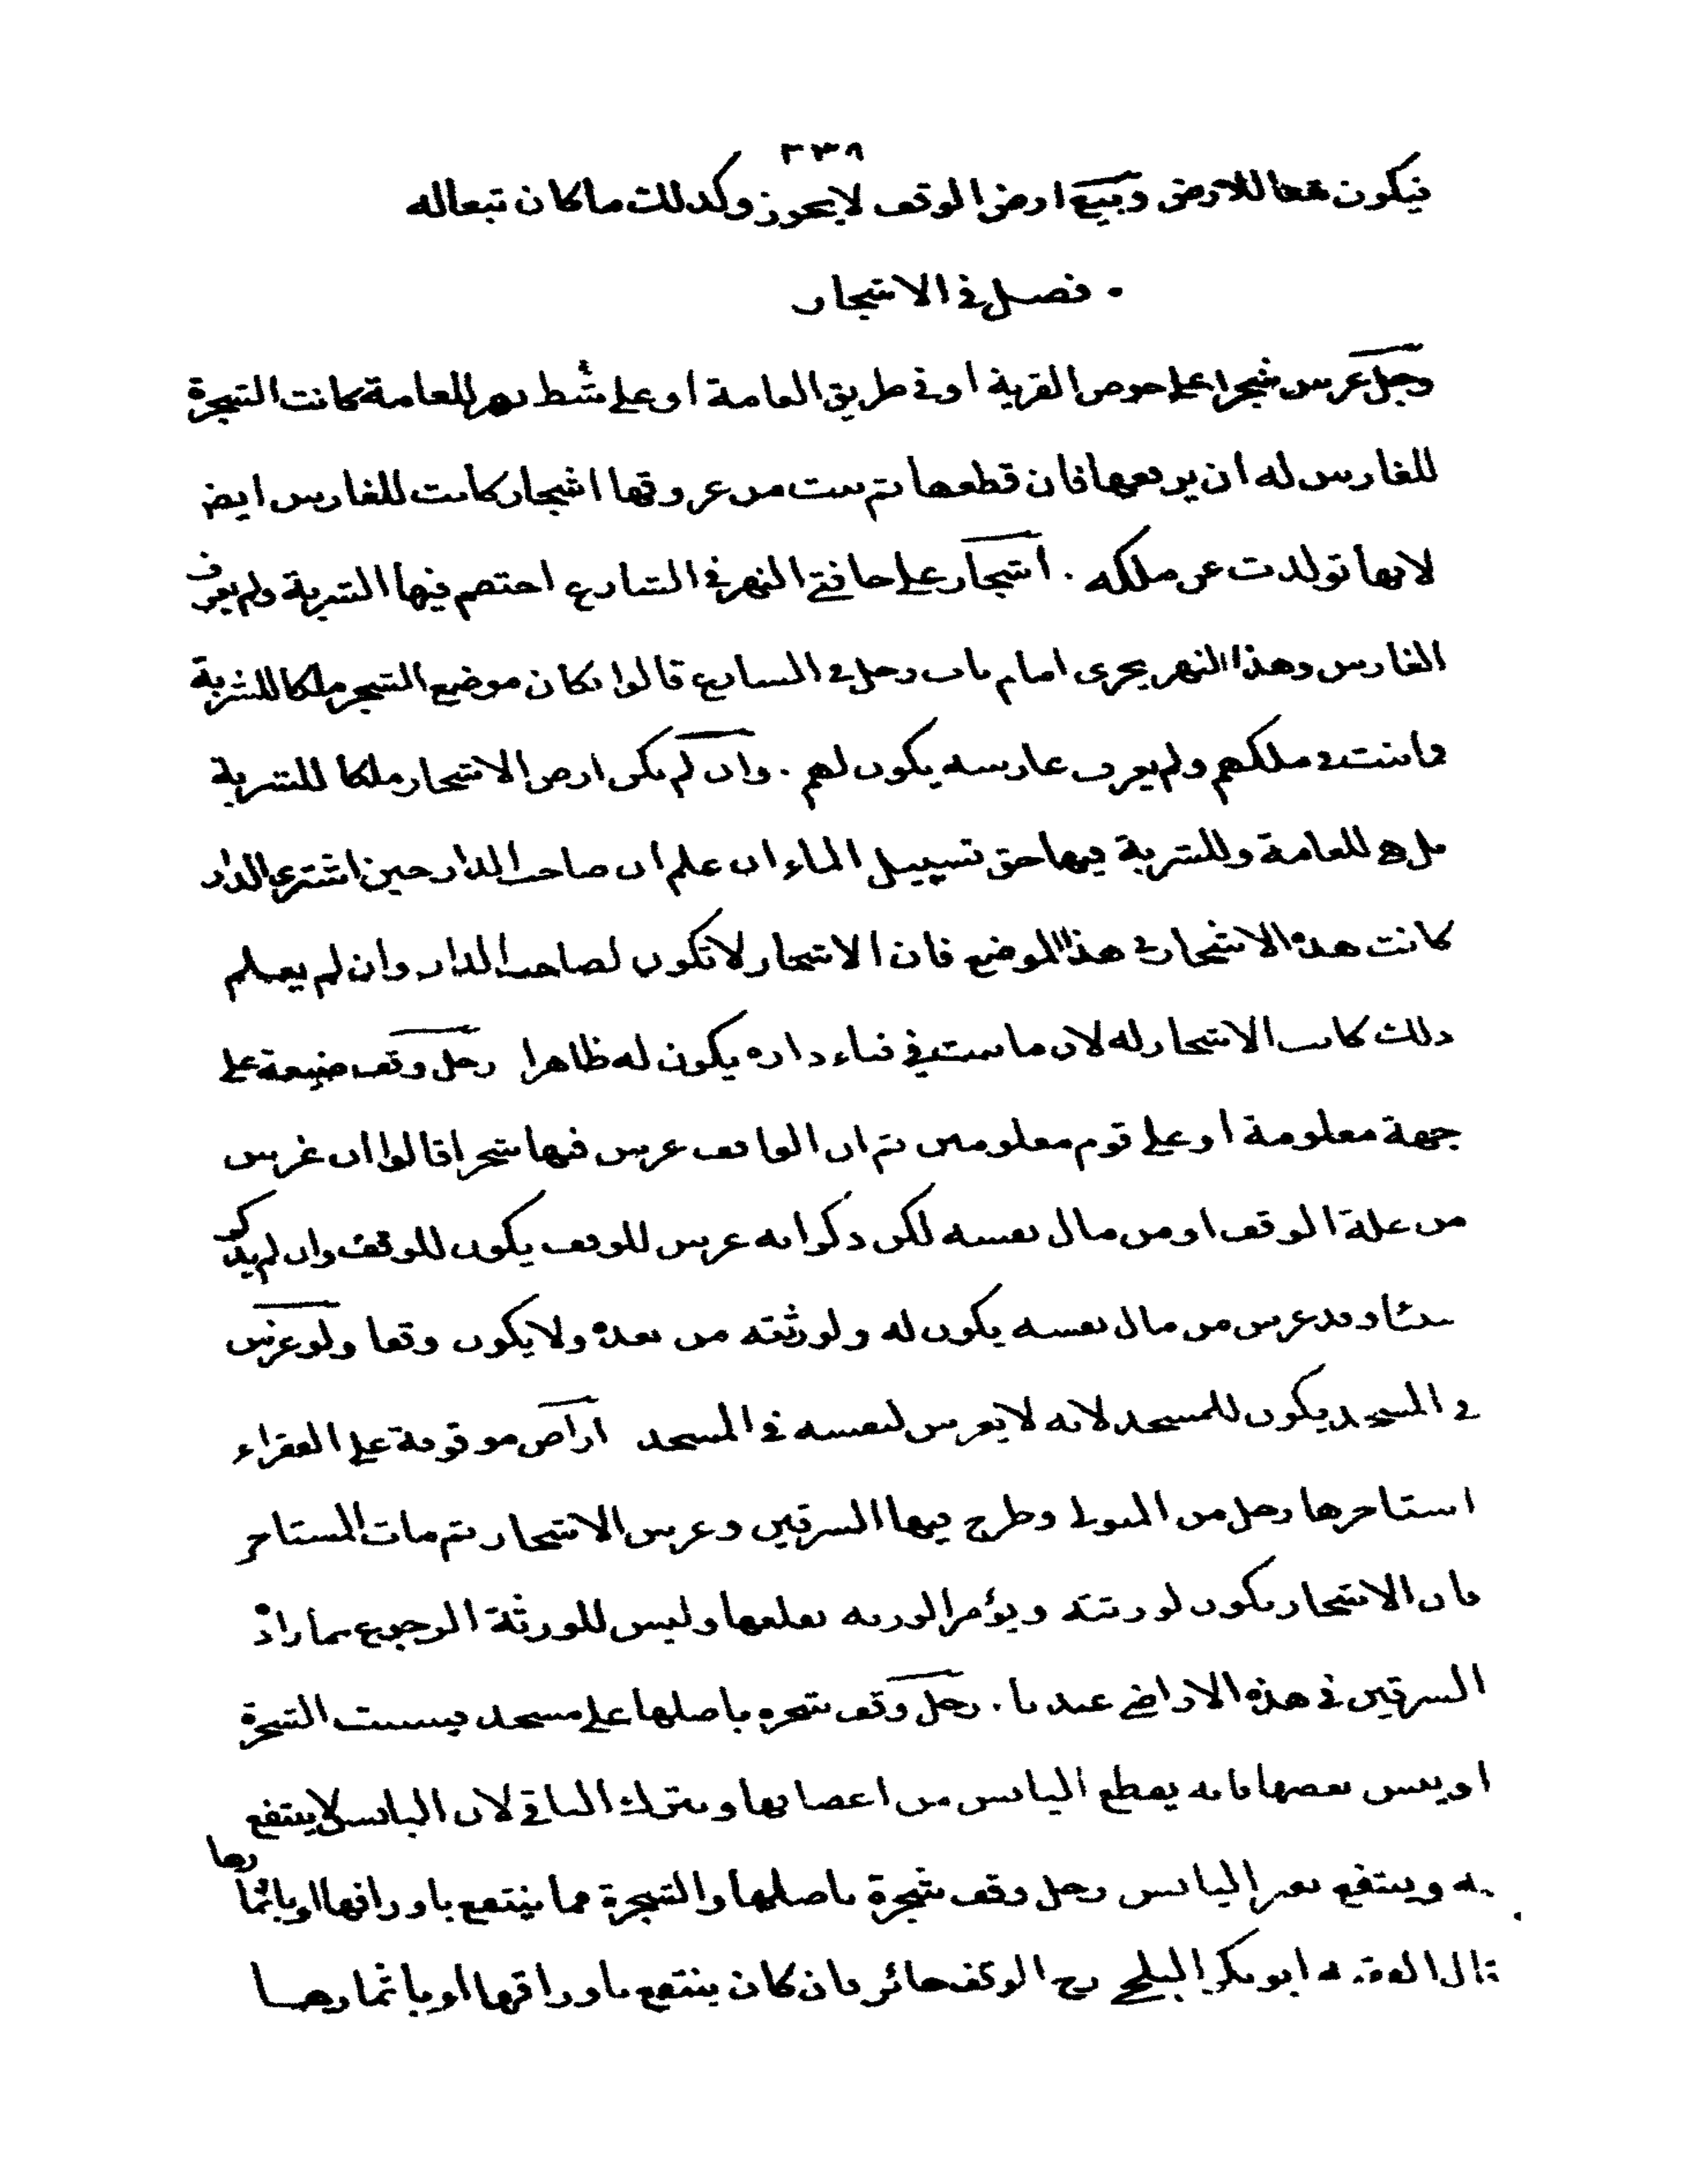 ٢٣٨
فيكون تبعا للارض وبيع ارض الوقف لا يجوز وكذلك ما كان تبعا له
• فصل في الاشجار
رجل غرس شجرا على حوض القرية او في طريق العامة او على شط نهر للعامة كانت الشجرة
للغارس له ان يرفعها فان قطعها ثم نبت من عروقها اشجار كانت للغارس ايض
لانها تولدت عن ملكه . اشجار على حافتي النهر في الشارع اختصم فيها الشربة ولم يعرف
الغارس وهذا النهر يجرى امام باب رجل في الشارع قالوا ان كان موضع الشجر ملكا للشربة
فما نبت في ملكهم ولم يعرف غارسه يكون لهم . وان لم يكن ارض الاشجار ملكا للشربة
بل هي للعامة وللشربة فيها حق تسييل الماء ان علم ان صاحب الدار حين اشترى الدار
كانت هذه الاشجار في هذا الموضع فان الاشجار لا تكون لصاحب الدار وان لم يعلم
ذلك كانت الاشجار له لان ما نبت في فناء داره يكون له ظاهرا رجل وقف ضيعة على
جهة معلومة او على قوم معلومين ثم ان الواقف غرس فيها شجرا قالوا ان غرس
من غلة الوقف او من مال نفسه لكن ذكر انه غرس للوقف يكون للوقف وان لم يذكر
شيئا وقد غرس من مال نفسه يكون له ولورثته من بعده ولا يكون وقفا ولو غرس
في المسجد يكون للمسجد لانه لا يغرس لنفسه في المسجد اراض موقوفة على الفقراء
استاجرها رجل من المتولى وطرح فيها السرقين وغرس الاشجار ثم مات المستاجر
فان الاشجار يكون لورثته ويؤمر الورثه بقلعها وليس للورثة الرجوع بما زاد
السرقين في هذه الاراضى عندنا . رجل وقف شجره باصلها على مسجد فيبست الشجرة
او يبس بعضها فانه يقطع اليابس من اغصانها ويترك الباقي لان اليابس لا ينتفع
به وينتفع بغير اليابس رجل وقف شجرة باصلها والشجرة مما ينتفع باوراقها او باثمارها
قال الفقيه ابو بكر البلخى رح الوقف جائز فان كان ينتفع باوراقها او باثمارها